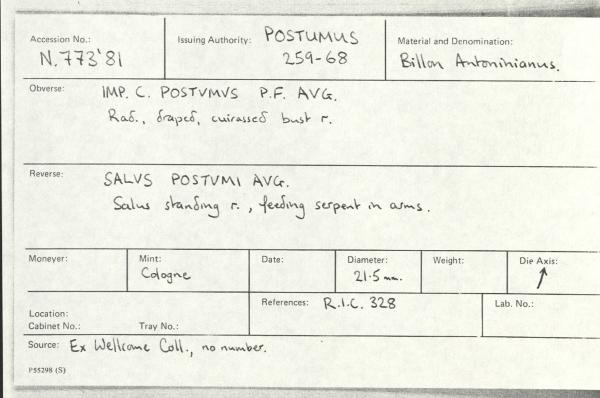 Accession No.: N.773'81
Issuing Authority: POSTUMUS
259-68
Material and Denomination:
Billon Antoninianus.
Obverse: IMP. C. POSTVMVS P.F. AVG.
Rad., draped, cuirassed bust r.
Reverse: SALVS POSTVMI AVG.
Salus standing r., feeding serpent in arms.
Moneyer:
Mint:
Cologne
Date:
Diameter:
21.5 mm.
Weight:
Die Axis:
↗
Location:
Cabinet No.: Tray No.:
References: R.I.C. 328
Lab. No.:
Source: Ex Wellcome Coll., no number.
P55298 (S)